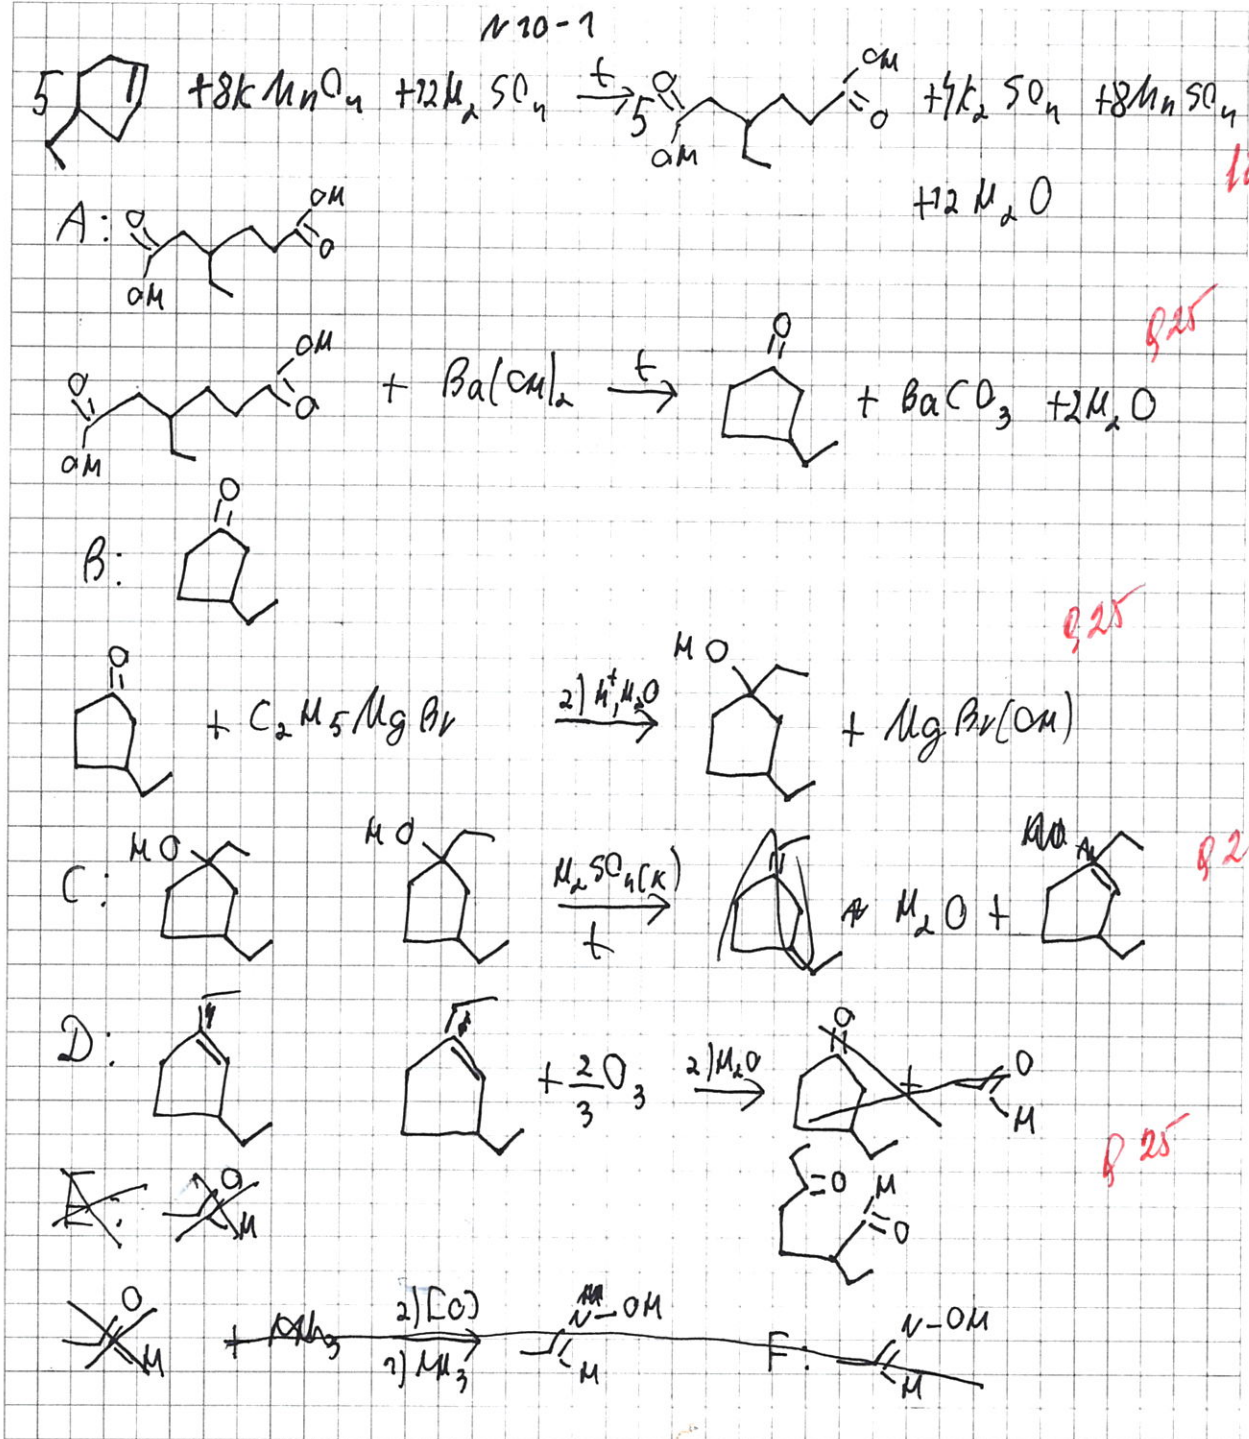 N 10-1
5 + 8KMnO₄ + 12H₂SO₄ t→ 5 O OH OH O + 4K₂SO₄ + 8MnSO₄
+ 12H₂O
A: O OH OH O
O OH OH O + Ba(OH)₂ t→ O + BaCO₃ + 2H₂O
0,25
B: O
0,25
O + C₂H₅MgBr 2) H⁺, H₂O→ HO + MgBr(OH)
C: HO HO H₂SO₄(к) t→ H₂O +
D: + 2/3 O₃ 2) H₂O→ O + O H
0,25
E: O H =O H =O
O H + NH₃ 2) [O] 1) NH₃→ N-OH H F: N-OH H